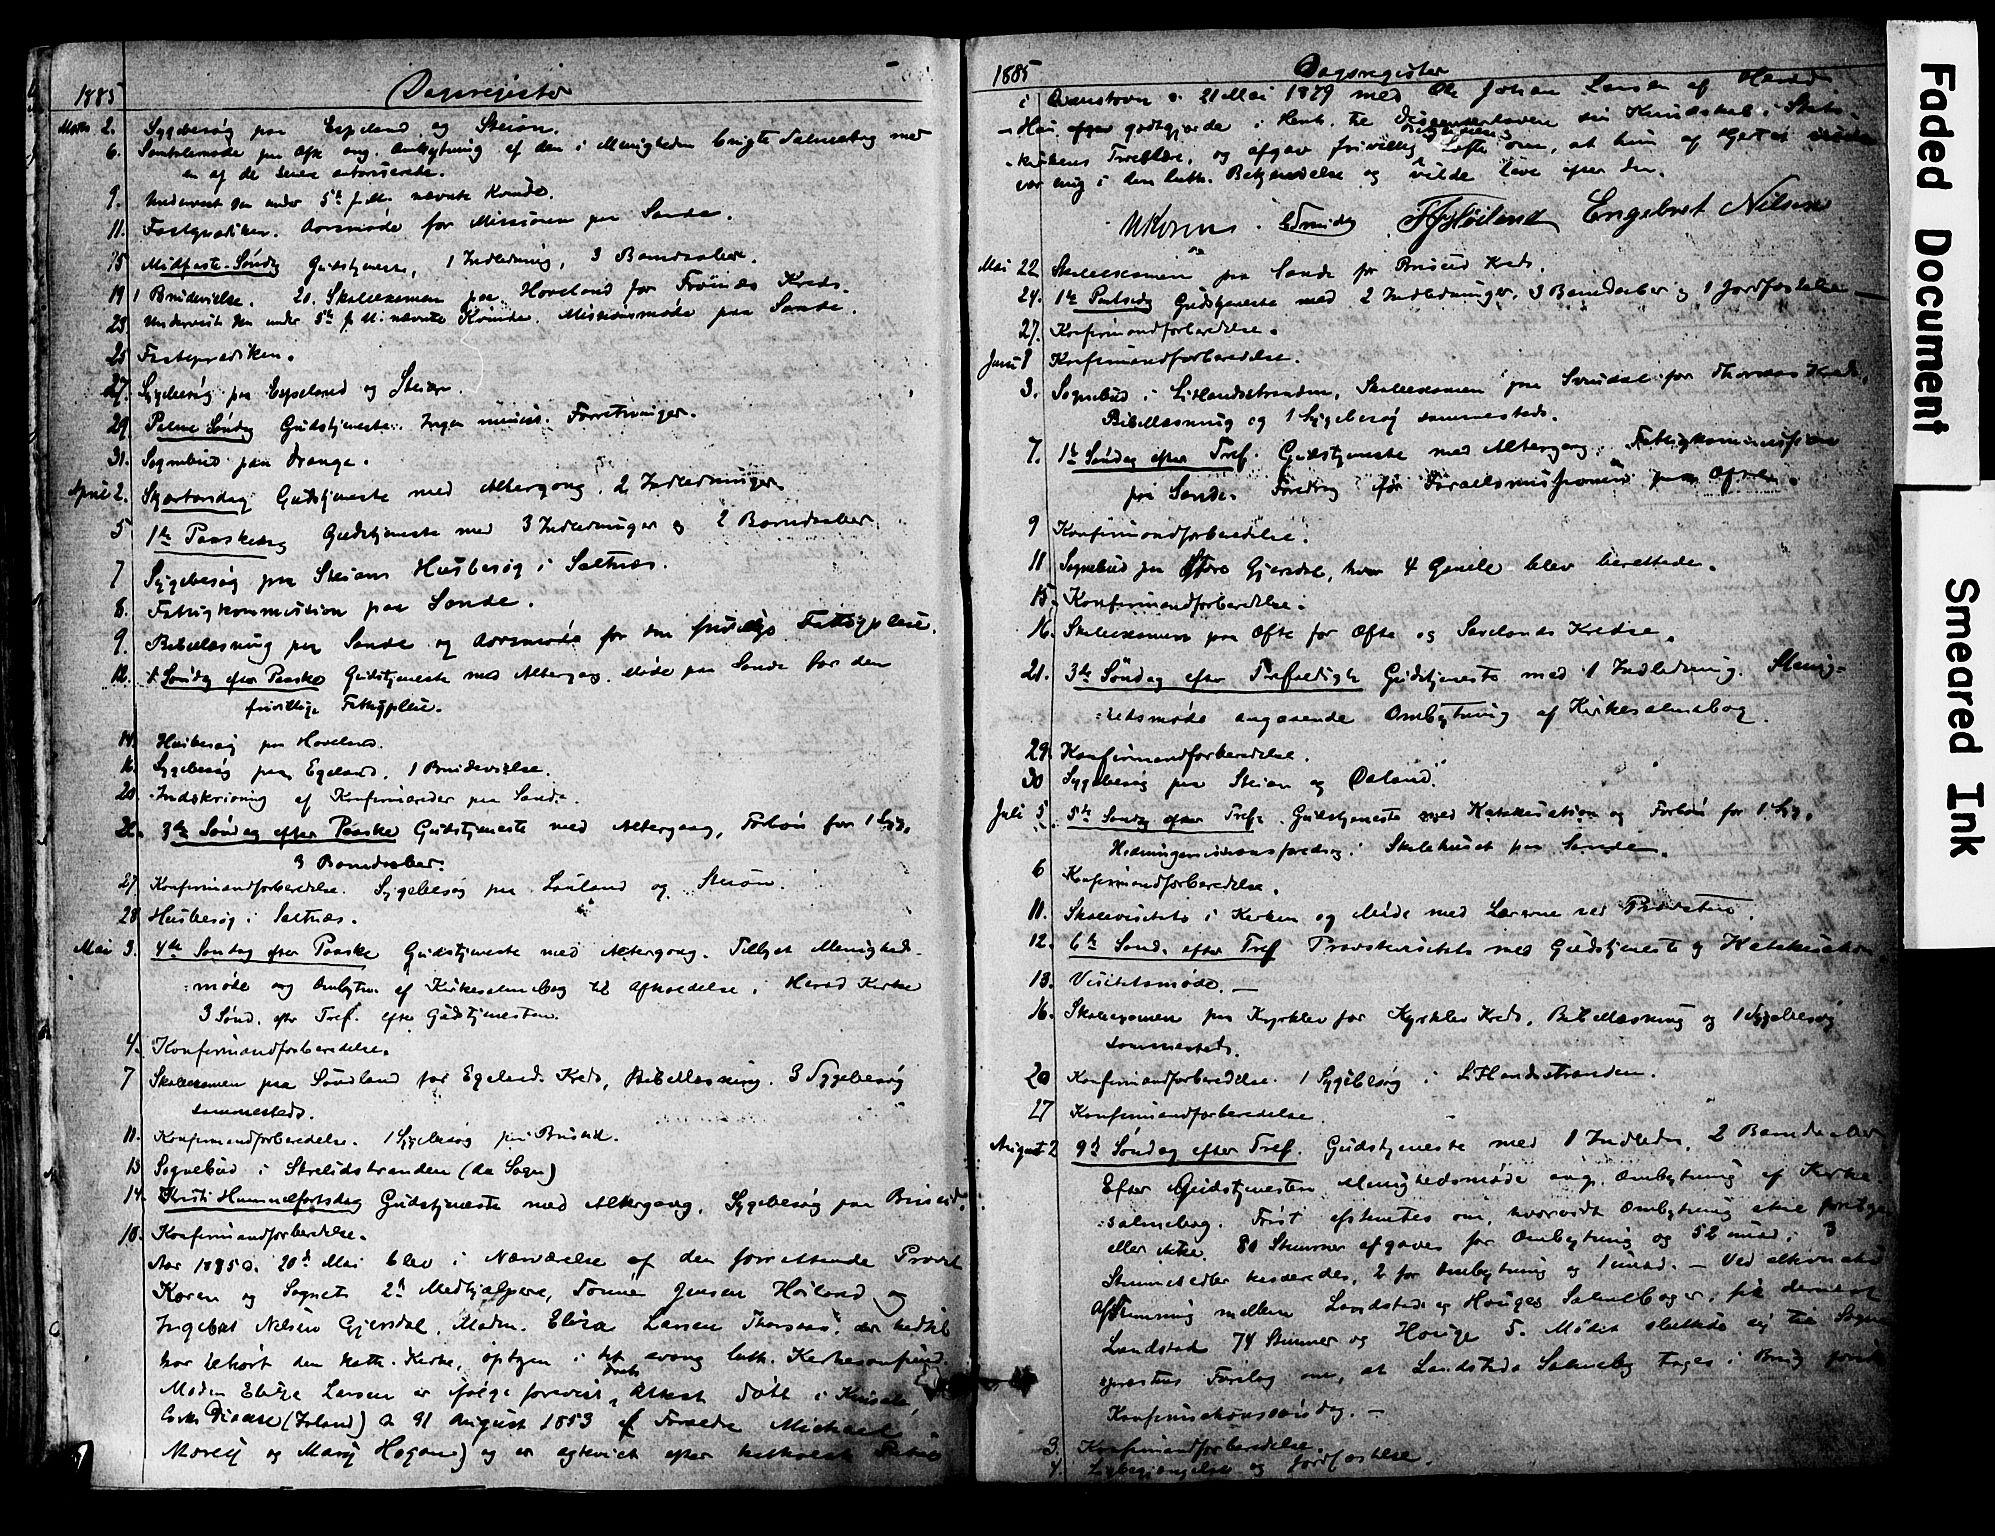 1885 Dagsregister
Marts 2. Sygebesøg paa Espeland og Steion.
6. Samtalemøde paa Øfte ang. Ombytning af den i Menigheden brugte Salmebog med
en af de senere autoriserede.
9. Underviist den under 5te f. M. nævnte Kvinde.
11. Fasteprædiken. Aarsmøde for Missionen paa Sande.
15 Midfaste-Søndag Gudstjeneste, 1 Indledning, 3 Barnedaaber.
19 1 Brudevielse. 20. Skoleexamen paa Hoveland for Frøinæs Kreds.
23. Underviist den under 5te f. M. nævnte Kvinde. Missionsmøde paa Sande.
25 Fasteprædiken.
27. Sygebesøg paa Espeland og Steion.
29. Palme Søndag Gudstjeneste. Ingen minist. Forretninger.
31. Sognebud paa Drange.
April 2. Skjærtorsdag Gudstjeneste med Altergang, 2 Indledninger.
5 1ste Paaskedag Gudstjeneste med 3 Indledninger og 2 Barnedaaber
7 Sygebesøg paa Steion. Husbesøg i Saltnæs.
8. Fattigkommission paa Sande.
9. Bibellæsning paa Sande og Aarsmøde for den frivillige Fattigpleie.
12. 1 Søndag efter Paaske Gudstjeneste med Altergang. Møde paa Sande for den
frivillige Fattigpleie.
14. Husbesøg paa Hoveland.
16. Sygebesøg paa Egeland. 1 Brudevielse.
20. Indskrivning af Konfirmander paa Sande.
26. 3die Søndag efter Paaske Gudstjeneste med Altergang, Forbøn for 1 Syg,
3 Barnedaaber.
27 Konfirmandforberedelse. Sygebesøg paa Lauland og Steion.
28 Husbesøg i Saltnæs.
Mai 3. 4de Søndag efter Paaske Gudstjeneste med Altergang. Tillyst Menigheds-
møde ang Ombytn. af Kirkesalmebog til Afholdelse i Herad Kirke
3 Sønd. efter Tref. efter Gudstjenesten.
4. Konfirmandforberedelse.
7 Skoleexamen paa Sundland for Egelands Kreds, Bibellæsning. 3 Sygebesøg
sammesteds.
11. Konfirmandforberedelse. 1 Sygebesøg paa Bruseid.
13 Sognebud i Skeelidstranden (da Sogn)
14. Kristi Himmelfartsdag Gudstjeneste med Altergang, Sygebesøg paa Bruseid.
18. Konfirmandforberedelse.
Aar 1885 d. 20de Mai blev i Nærværelse af den forrettende Provst
Koren og Sognets 2de Medhjælpere, Tønnes Jensen Høiland og
Ingebret Nilsen Gjersdal, Madm. Eliza Larsen Thorsaas, der hidtil
har tilhørt den kath. Kirke, optagen i det evang. luth. Kirkesamfund.
Madm Eliza Larsen er ifølge forevist Daabs Attest født i Kinsale
Corks Diocese (Irland) d 21 August 1853 af Forældre Michael
Morely og Mary Hogan) og er ægteviet efter katholsk Ritus
1885 Dagsregister
i d. 21 Mai 1879 med Ole Johan Larsen af Herad
Hun afgav godtgjorde i Henh. til Dissenterloven sin Kundskab i Stats-
kirkens Troeslære, og afgav frivillig Løfte om, at hun af Hjertet
var enig i den luth. Bekjendelse og vilde leve efter den.
U Koren. T J Høiland Engebret Nilsen
Mai 22 Skoleexamen paa Sande for Bruseid Kreds.
24. 1ste Pintsedag Gudstjeneste med 2 Indledninger, 3 Barnedaaber og 1 Jordfæstelse
27. Konfirmandforberedelse.
Juni 1 Konfirmandforberedelse.
3. Sognebud i Litlandsstranden, Skoleexamen paa Svindal for Thorsaas Kreds,
Bibellæsning og 1 Sygebesøg sammesteds.
7. 1ste Søndag efter Tref. Gudstjeneste med Altergang. Fattigkommission
paa Sande. Foredrag for Israelsmissionen paa Øfte.
9 Konfirmandforberedelse.
11 Sognebud paa Øfdre Gjersdal, hvor 4 Gamle blev berettede.
15. Konfirmandforberedelse.
16. Skoleexamen paa Øfte for Øfte og Sævelands Kredse.
21. 3die Søndag efter Trefoldigh Gudstjeneste med 1 Indledning. Menig-
hedsmøde angaaende Ombytning af Kirkesalmebog.
29. Konfirmandforberedelse.
30 Sygebesøg paa Steion og Østand.
Juli 5. 5te Søndag efter Tref. Gudstjeneste med Katekisation og Forbøn for 1 Syg,
Hedningemissionsforedrag i Skolehuset paa Sande.
6 Konfirmandforberedelse.
11. Skolevisitats i Kirken og Møde med Lærerne ved Provsten.
12. 6te Sønd. efter Tref Provstevisitats med Gudstjeneste og Katekisation.
13. Visitatsmøde.
16. Skoleexamen paa Kyrklev for Kyrklev Kreds, Bibellæsning og 1 Sygebesøg
sammesteds.
20 Konfirmandforberedelse. 1 Sygebesøg i Litlandsstranden.
27 Konfirmandforberedelse
August 2 9de Søndag efter Tref. Gudstjeneste med 1 Indledn. 2 Barnedaaber
Efter Gudstjenesten Menighedsmøde ang. Ombytning af Kirke
salmebog. Først afstemtes om, hvorvidt Ombytning skal foretages
eller ikke. 80 Stemmer afgaves for Ombytning og 52 imod; 3
Stemmesedler kasseredes, 2 for Ombytning og 1 imod. – Ved alternativ
Afstemning mellem Landstads og Hauges Salmebøger, fik dernæst
Landstad 74 Stemmer og Hauge 5. Mødet sluttede sig til Sogne-
præstens Forslag om, at Landstads Salmebog tages i Brug første
Konfirmationssøndag. –
3. Konfirmandforberedelse.
4. Ligbegjængelse og Jordfæstelse.
Faded Document
Smeared Ink